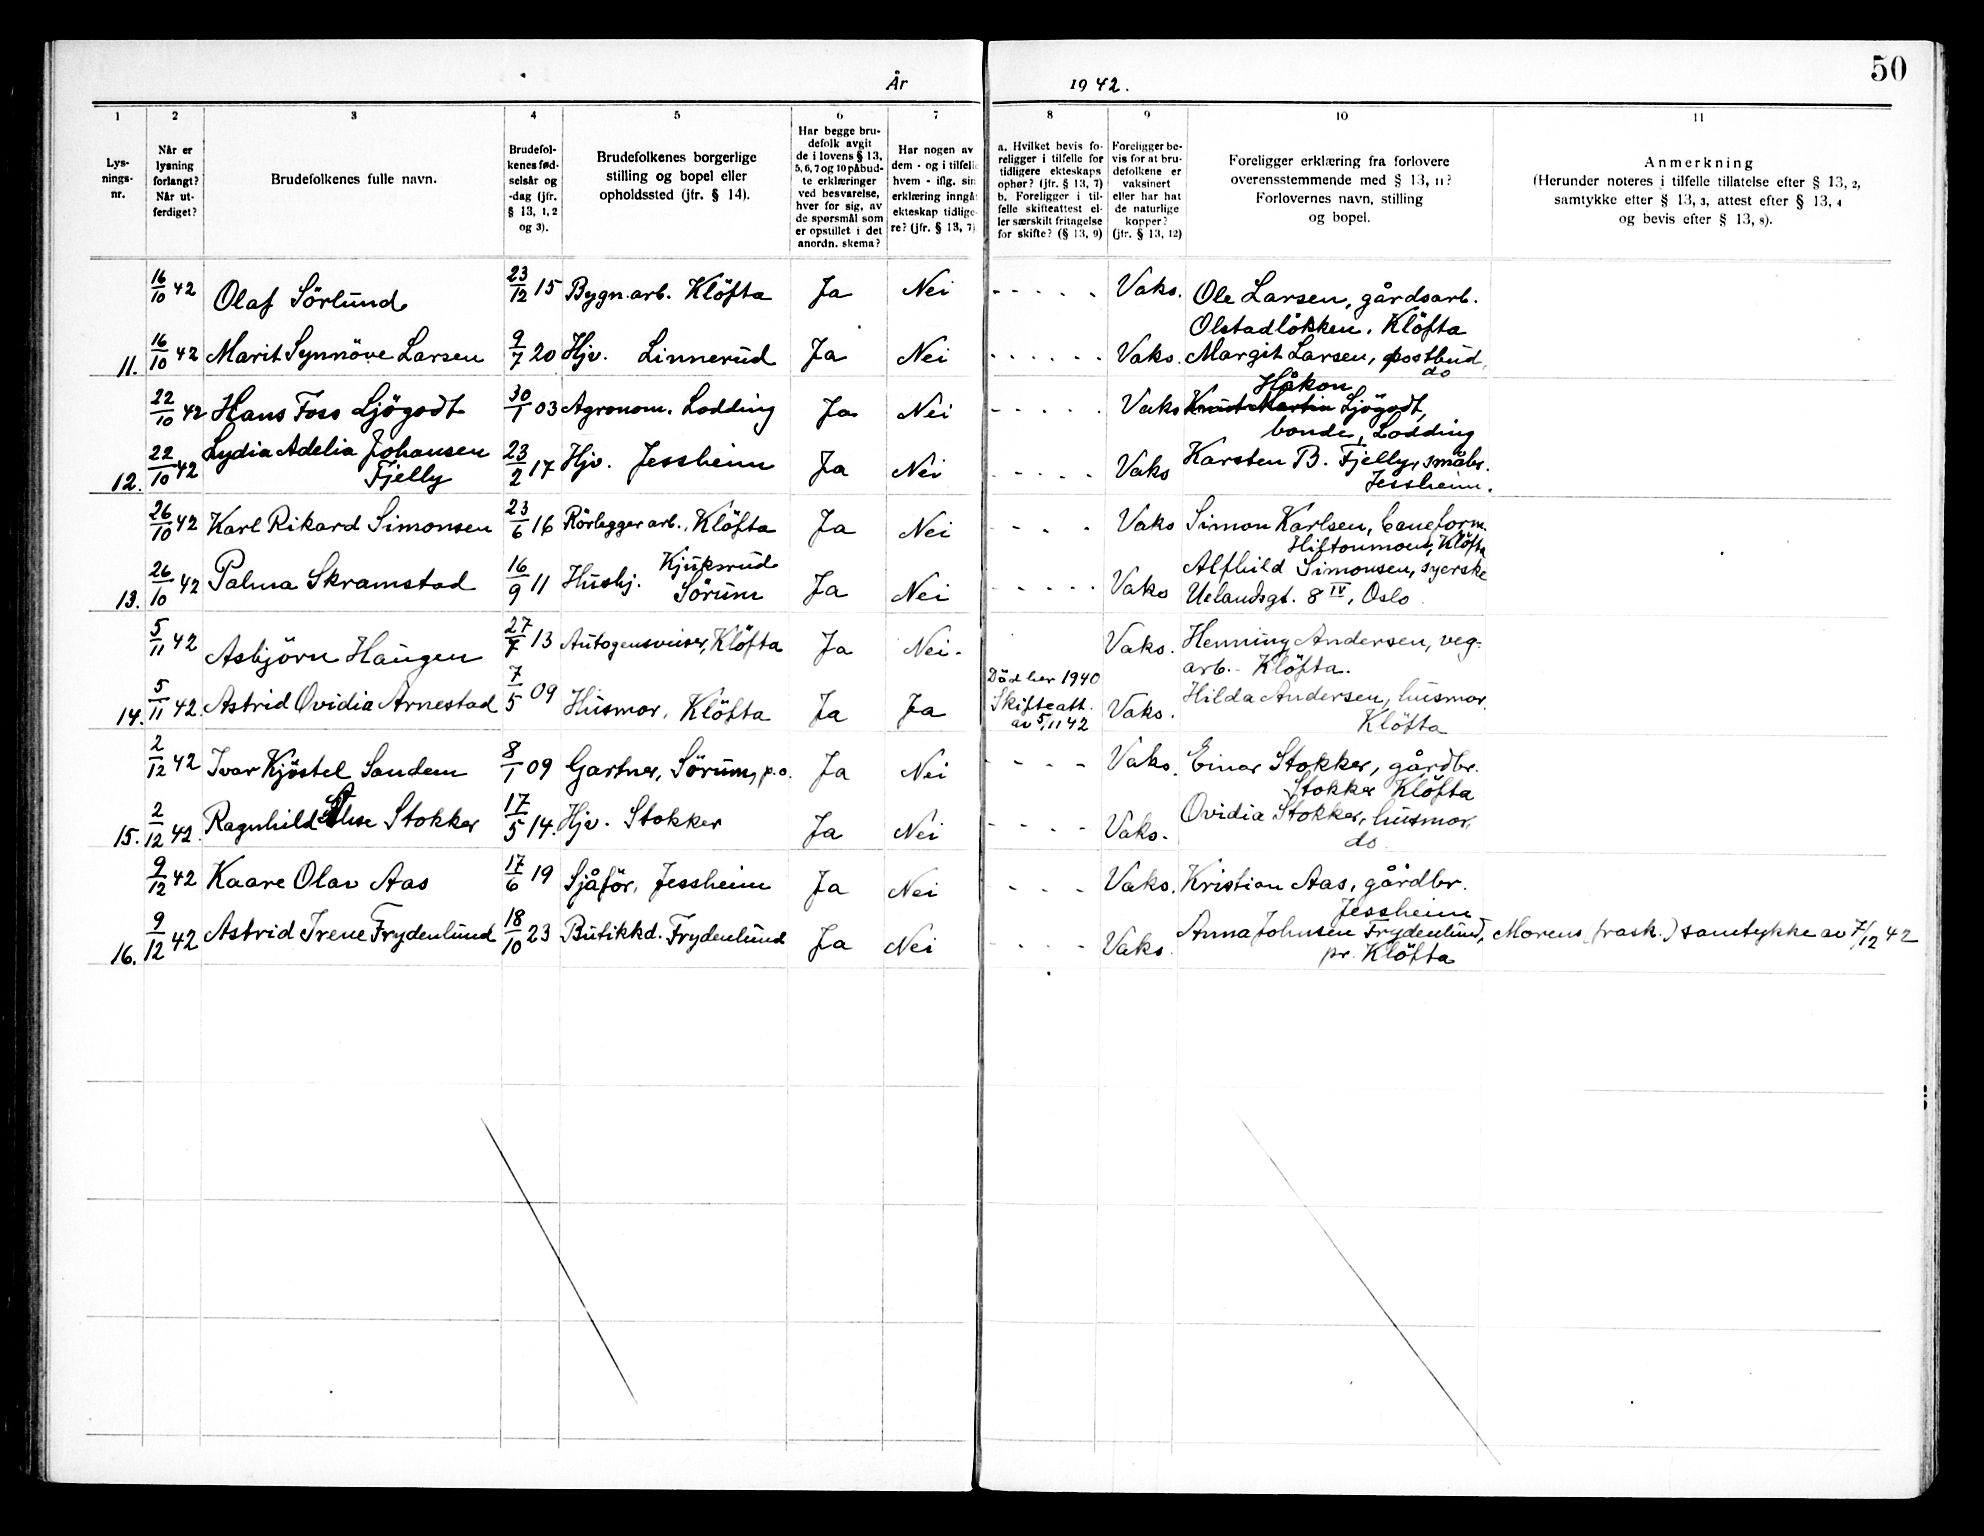 50
År 1942.
1 2 3 4 5 6 7 8 9 10 11
Lys-
nings-
nr.
Når er
lysning
forlangt?
Når ut-
ferdiget?
Brudefolkenes fulle navn.
Brudefol-
kenes fød-
selsår og
-dag (jfr.
§ 13, 1, 2
og 3).
Brudefolkenes borgerlige
stilling og bopel eller
opholdssted (jfr. § 14).
Har begge bru-
defolk avgit
de i lovens § 13,
5, 6, 7 og 10 påbud-
te erklæringer
ved besvarelse,
hver for sig, av
de spørsmål som
er opstillet i det
anordn. skema?
Har nogen av
dem - og i tilfelle
hvem - iflg. sin
erklæring inngå
ekteskap tidlige-
re? (jfr. § 13, 7)
a. Hvilket bevis fo-
religger i tilfelle for
tidligere ekteskaps
ophør? (jfr. § 13, 7)
b. Foreligger i til-
felle skifteattest el-
ler særskilt fritagelse
for skifte? (§ 13, 9)
Foreligger be-
vis for at bru-
defolkene er
vaksinert
eller har hat
de naturlige
kopper?
(jfr. § 13, 12)
Foreligger erklæring fra forlovere
overensstemmende med § 13, 11?
Forlovernes navn, stilling
og bopel.
Anmerkning
(Herunder noteres i tilfelle tillatelse efter § 13, 2,
samtykke efter § 13, 3, attest efter § 13, 4
og bevis efter § 13, 8).
16/10 42 Olaf Sörlund 23/12 15 Bygn.arb. Klöfta Ja Nei - - - - - Vaks. Ole Larsen, gårdsarb.
Olstadlökken, Klöfta
11. 16/10 42 Marit Synnöve Larsen 9/7 20 Hjv. Linnerud Ja Nei - - - - - - Vaks. Margit Larsen, postbud,
do
22/10 42 Hans Foss Ljögodt 30/1 03 Agronom. Lodding Ja Nei - - - - - Vaks Knut Martin Håkon Ljögodt,
bonde, Lodding
12. 22/10 42 Lydia Adelia Johansen
Fjelly 23/2 17 Hjv. Jessheim Ja Nei - - - - - Vaks Karsten B. Fjelly, småbr.
Jessheim.
26/10 42 Karl Rikard Simonsen 23/6 16 Rörleggerarb., Klöfta Ja Nei - - - - Vaks Simon Karlsen, baneform.
Klöfta
13. 26/10 42 Palma Skramstad 16/9 11 Hushj. Kjuksrud
Sörum Ja Nei - - - - - Vaks Alfhild Simonsen, syerske
Uelandsgt. 8 IV, Oslo
5/11 42 Asbjörn Haugen 27/7 13 Autogensveiser, Klöfta Ja Nei. Vaks. Henning Andersen, veg-
arb. - Klöfta.
14. 5/11 42. Astrid Ovidia Arnestad 7/5 09 Husmor, Klöfta Ja Ja Död her 1940
Skifteatt.
av 5/11 42 Vaks. Hilda Andersen, husmor,
Klöfta
2/12 42 Ivar Kjöstel Sandem 8/1 09 Gartner, Sörum, p.o. Ja Nei - - - - Vaks. Einar Stokker, gårdbr.
Stokker Klöfta
15. 2/12 42. Ragnhild Else Stokker 17/5 14. Hjv. Stokker Ja Nei - - - - Vaks. Ovidia Stokker, husmor,
do.
9/12 42 Kaare Olav Aas 17/6 19 Sjåför, Jessheim Ja Nei - - - Vaks. Kristian Aas, gårdbr.
Jessheim
16. 9/12 42 Astrid Irene Frydenlund 18/10 23 Butikkd. Frydenlund Ja Nei - - - - Vaks. Anna Johnsen Frydenlund, Morens (rask.) samtykke av 7/12 42
pr. Klöfta